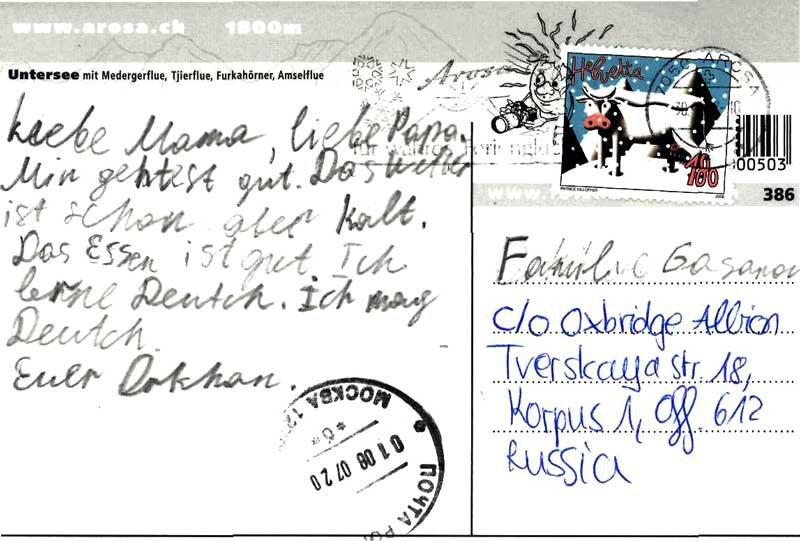 www.arosa.ch 1800m
Untersee mit Medergerflue, Tjierflue, Furkahörner, Amselflue
Liebe Mama, liebe Papa.
Mir geht est gut. Das Wetter
ist schon aber kalt.
Das Essen ist gut. Ich
lerne Deutch. Ich mag
Deutch.
Euer Orkhan.
Arosa
Helvetia
180
PATRICE KILLOFFER
7050 AROSA
00503
386
Familie Gasanov
C/o Oxbridge Albion
Tverskaya str. 18,
Korpus 1, Off. 612
Russia
МОСКВА
01 08 07 20
ПОЧТА